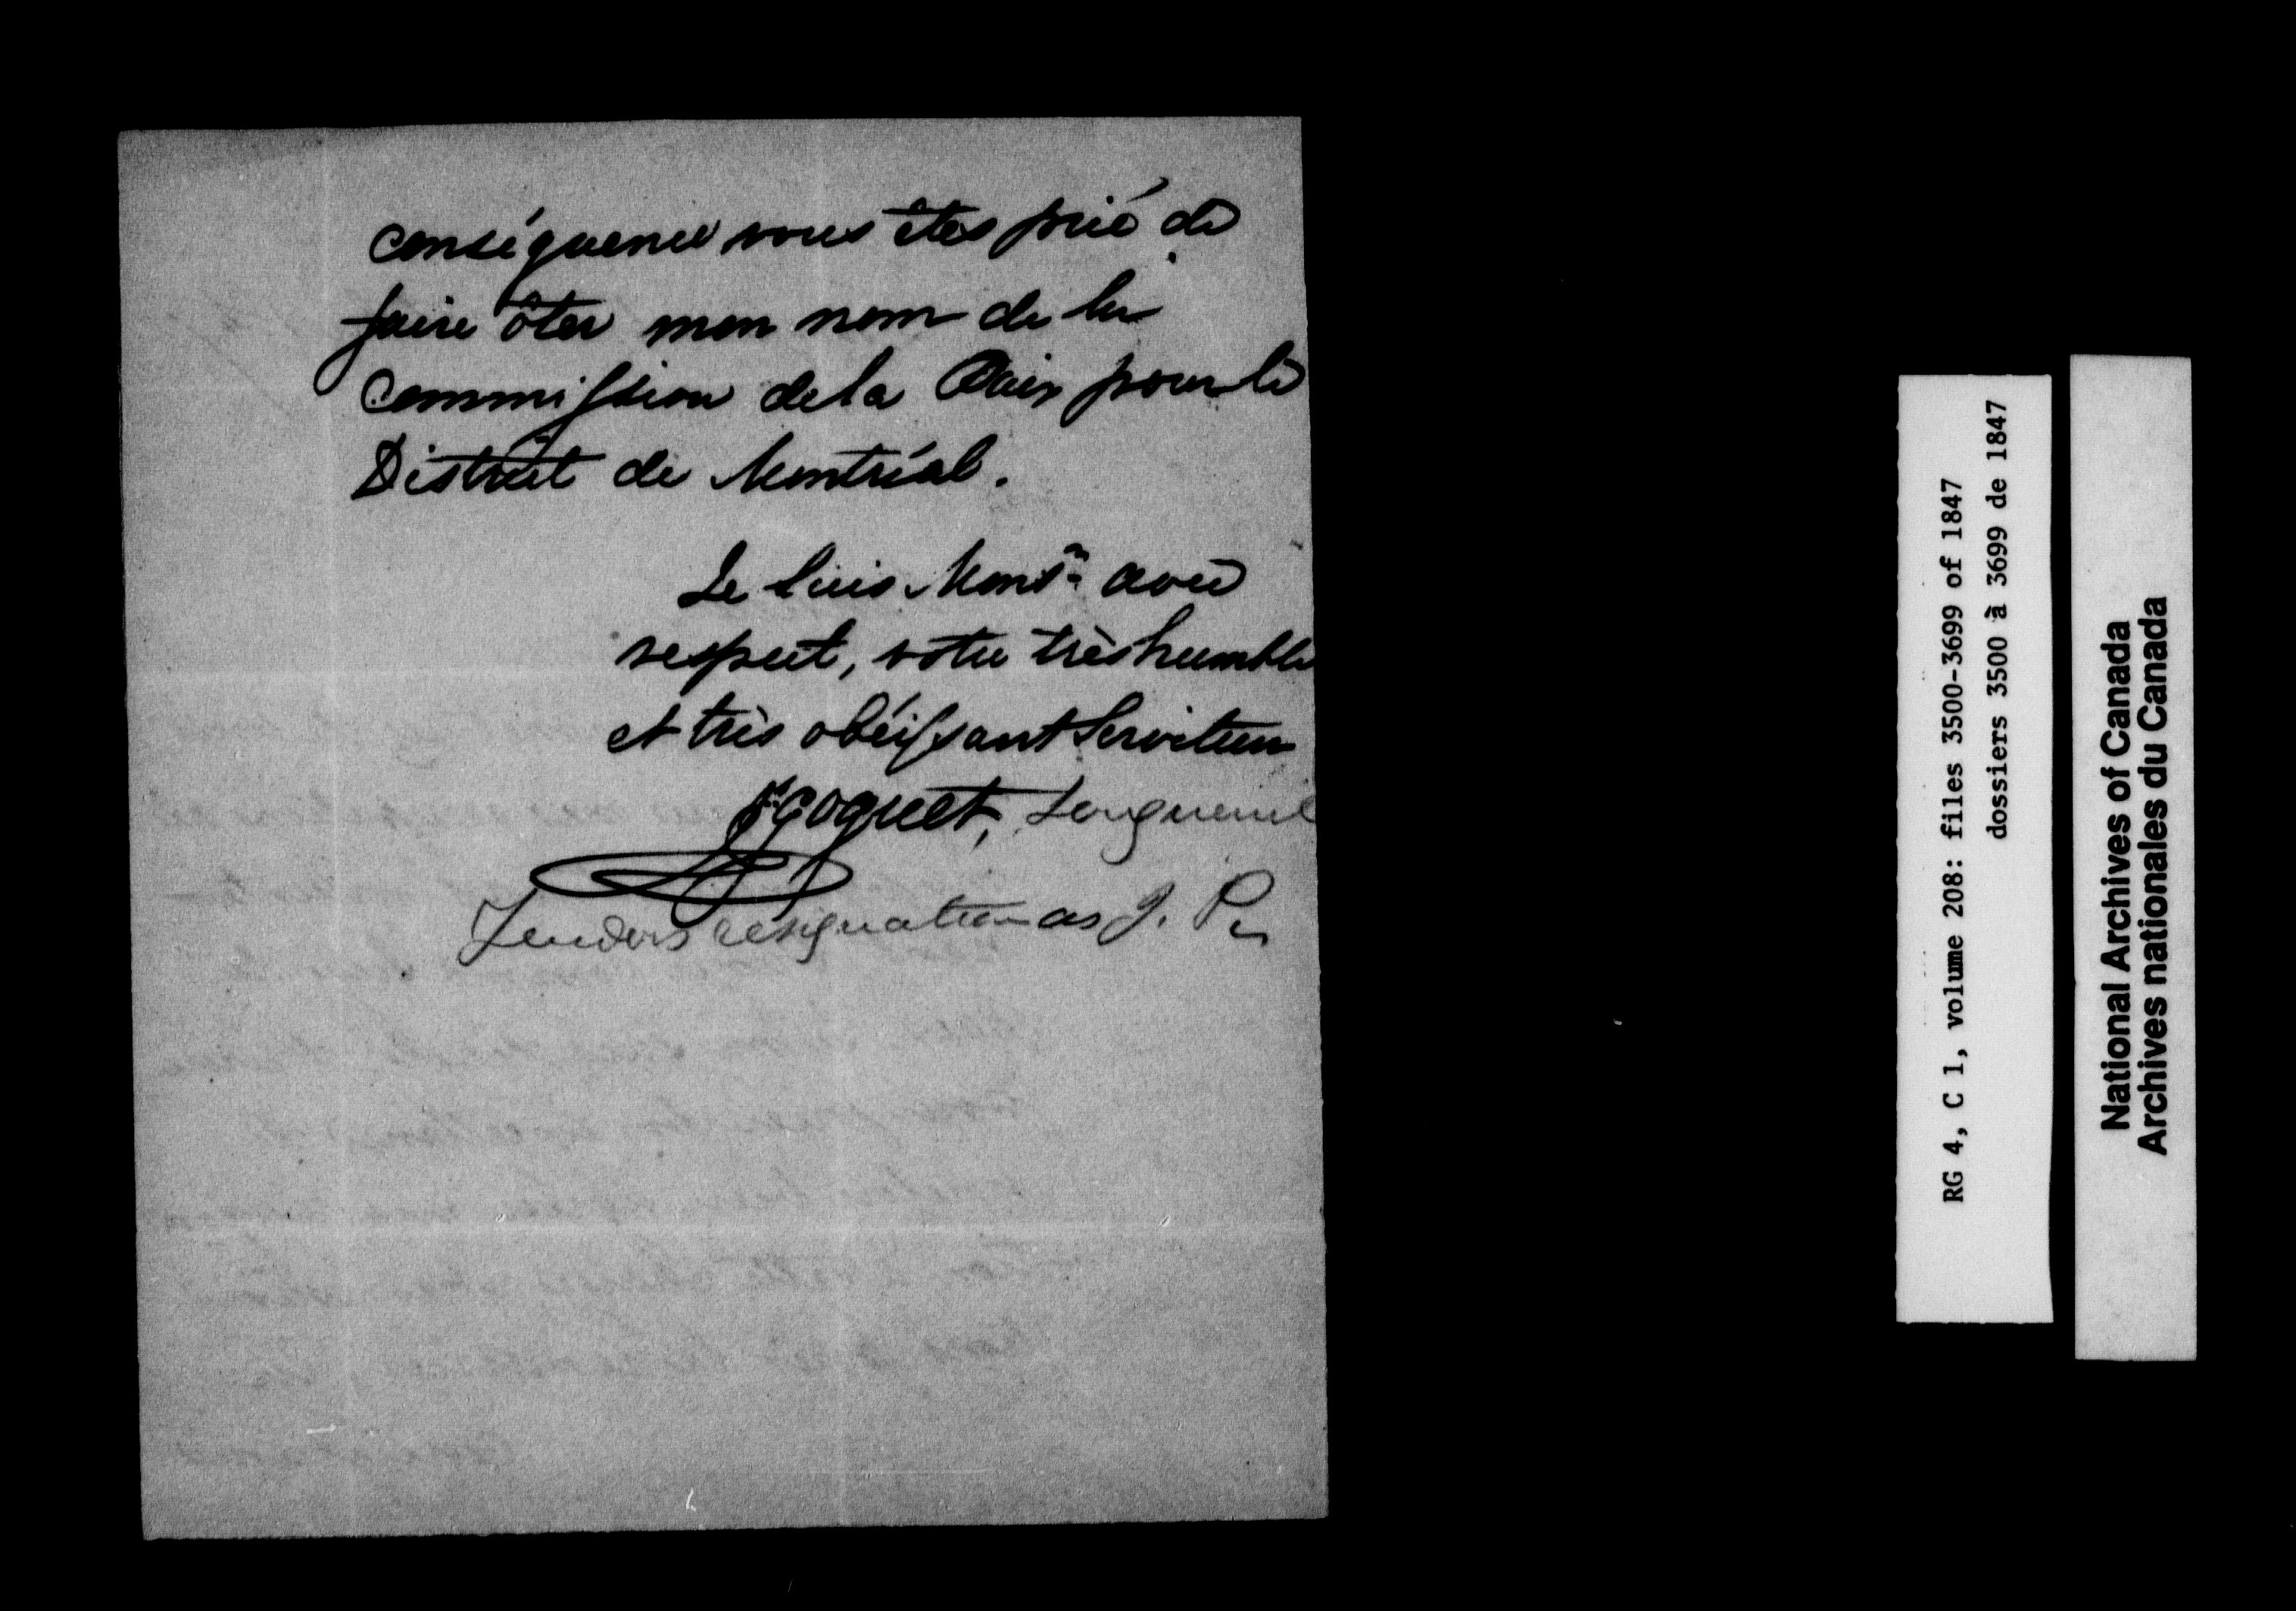 conséquence vous êtes prié de
faire ôter mon nom de la
Commission de la Paix pour le
District de Montréal.
Je suis Monsr. avec
respect, votre très humble
et très obéissant Serviteur
Goguet, Longueuil
Tenders resignation as J. P.
RG 4, C 1, volume 208: files 3500-3699 of 1847
dossiers 3500 à 3699 de 1847
National Archives of Canada
Archives nationales du Canada